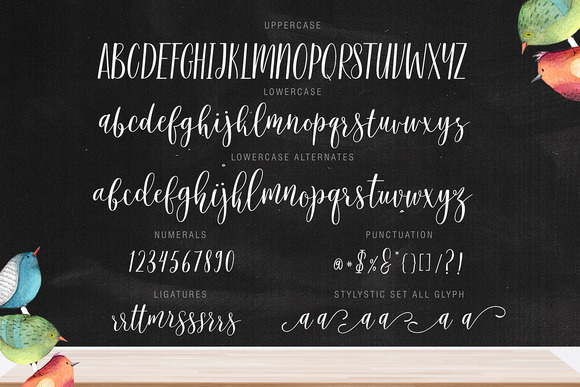 UPPERCASE
ABCDEFGHIJKLMNOPQRSTUVWXYZ
LOWERCASE
abcdefghijklmnopqrstuvwxyz
LOWERCASE ALTERNATES
abcdefghijklmnopqrstuvwxyz
NUMERALS
PUNCTUATION
1234567890
@#$%&*(){}[]/?!
LIGATURES
STYLYSTIC SET ALL GLYPH
a a a a a a